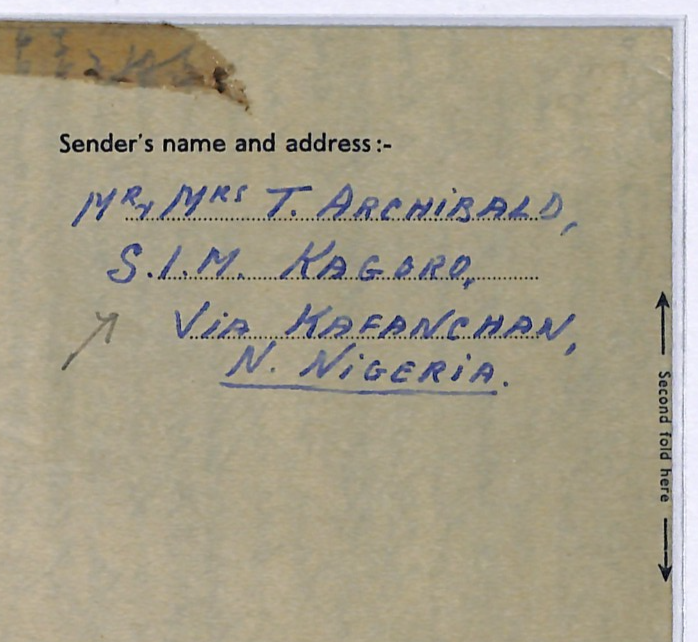 Sender's name and address :-
Mr & Mrs T. ARCHiBALD,
S.I.M. KAGORO,
ViA KAFANCHAN,
N. NiGERiA.
Second fold here